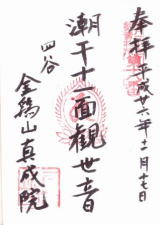 奉拝 平成廿六年十一月十七日
潮干十一面観世音
四谷
金鶏山真成院